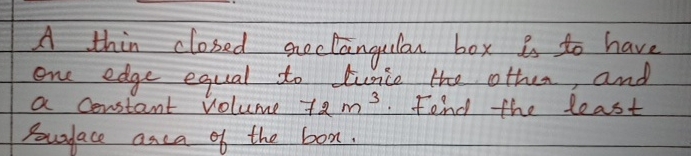 A thin closed rectangular box is to have
one edge equal to twice the other, and
a constant volume 72 m³. Find the least
surface area of the box.